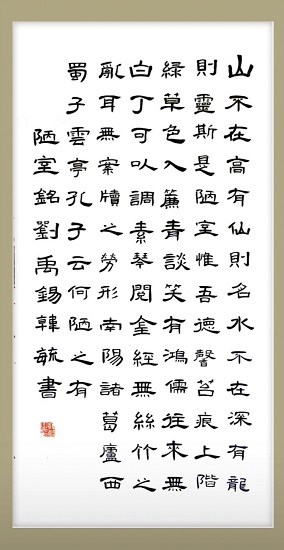 山不在高有仙則名水不在深有龍
則靈斯是陋室惟吾德馨苔痕上階
綠草色入簾青談笑有鴻儒往來無
白丁可以調素琴閱金經無絲竹之
亂耳無案牘之勞形南陽諸葛廬西
蜀子雲亭孔子云何陋之有
陋室銘劉禹錫韓毓書